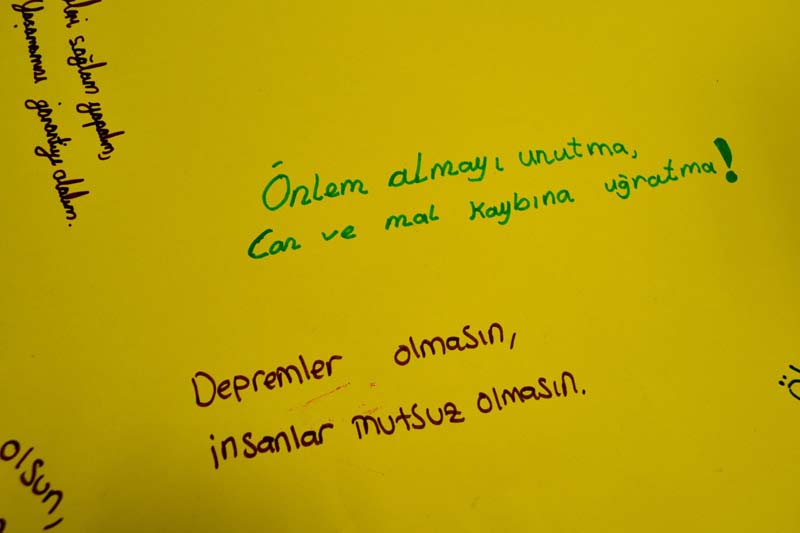 sağlam yapalım,
garantiye alalım.
Önlem almayı unutma,
Can ve mal kaybına uğratma!
Depremler olmasın,
insanlar mutsuz olmasın.
olsun,